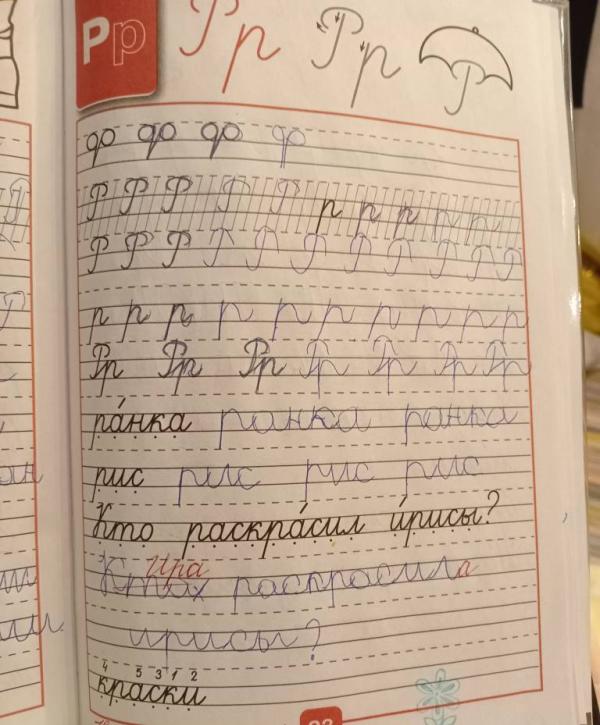 Рр Рр Рр Р
Р Р Р Р Р р р р р р
Р Р Р Р Р Р Р Р Р Р Р
р р р р р р р р р р
Рр Рр Рр Рр Рр Рр Рр
ра́нка ранка ранка
рис рис рис рис
Кто раскра́сил и́рисы?
Ира
Кто раскрасила
ирисы?
4 5 3 1 2
краски